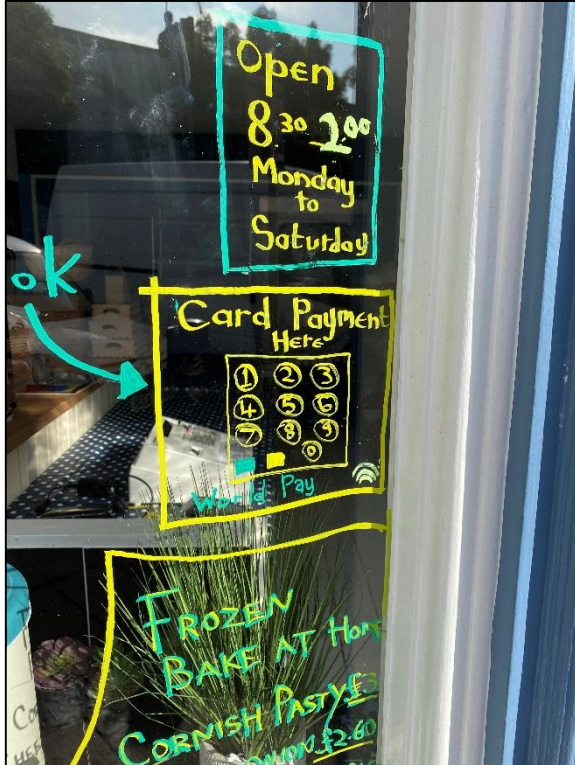 Open
8.30 2.00
Monday
to
Saturday
ok
Card Payment
Here
1 2 3
4 5 6
7 8 9
0
World Pay
FROZEN
BAKE AT HOME
CORNISH PASTY £3
ONION £2.60